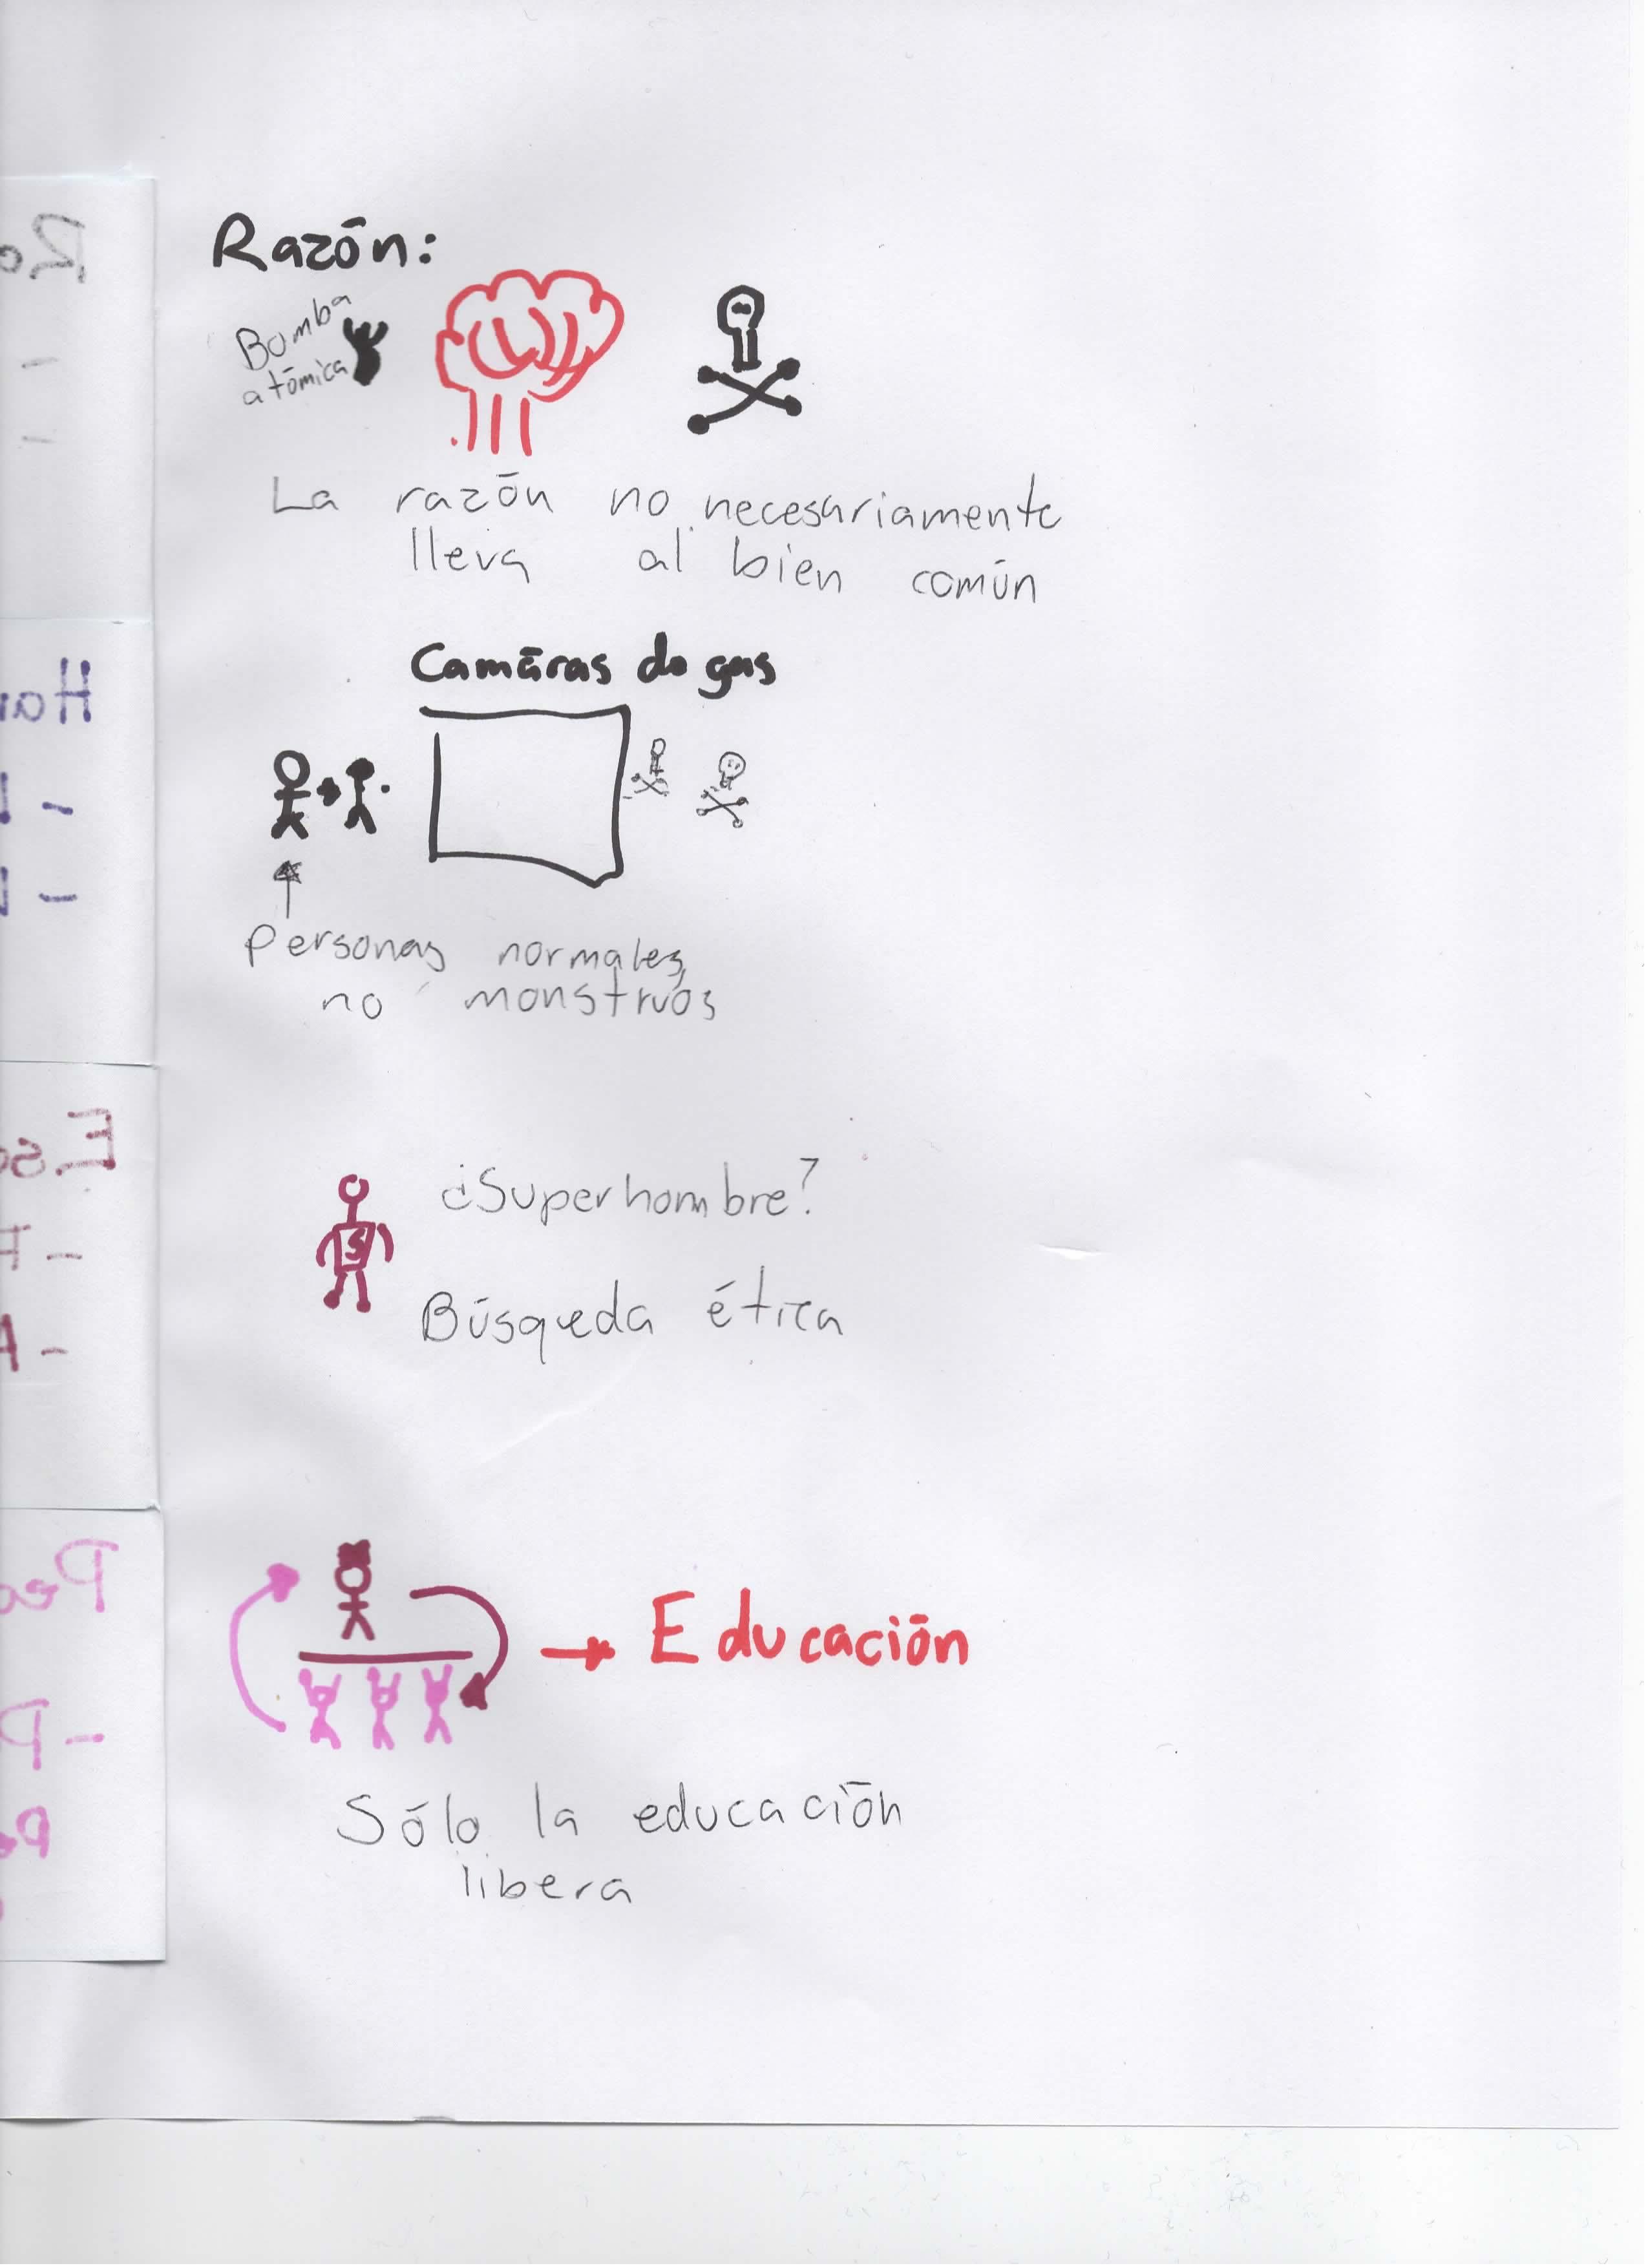 Razón:
Bomba
atómica
La razón no necesariamente
lleva al bien común
Camáras de gas
Personas normales,
no monstruos
¿Superhombre?
Búsqueda ética
S
Educación
Sólo la educación
libera